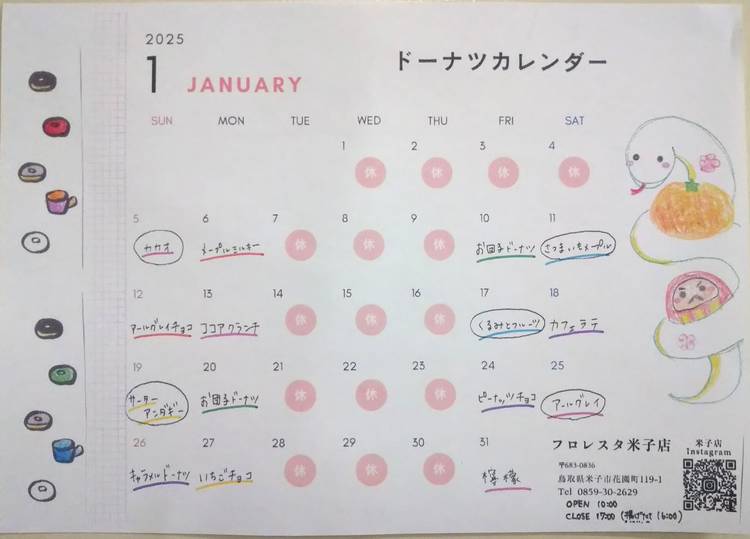 2025
1 JANUARY
ドーナツカレンダー
SUN MON TUE WED THU FRI SAT
1 2 3 4
休 休 休 休
5 6 7 8 9 10 11
カカオ メープルミルキー 休 休 休 お団子ドーナツ さつまいもメープル
12 13 14 15 16 17 18
アールグレイチョコ ココアクランチ 休 休 休 くるみとフルーツ カフェラテ
19 20 21 22 23 24 25
サーターアンダギー お団子ドーナツ 休 休 休 ピーナッツチョコ アールグレイ
26 27 28 29 30 31
キャラメルドーナツ いちごチョコ 休 休 休 檸檬
フロレスタ米子店
〒683-0836
鳥取県米子市花園町119-1
Tel 0859-30-2629
OPEN 10:00
CLOSE 17:00 (揚げたて 16:00)
米子店
Instagram